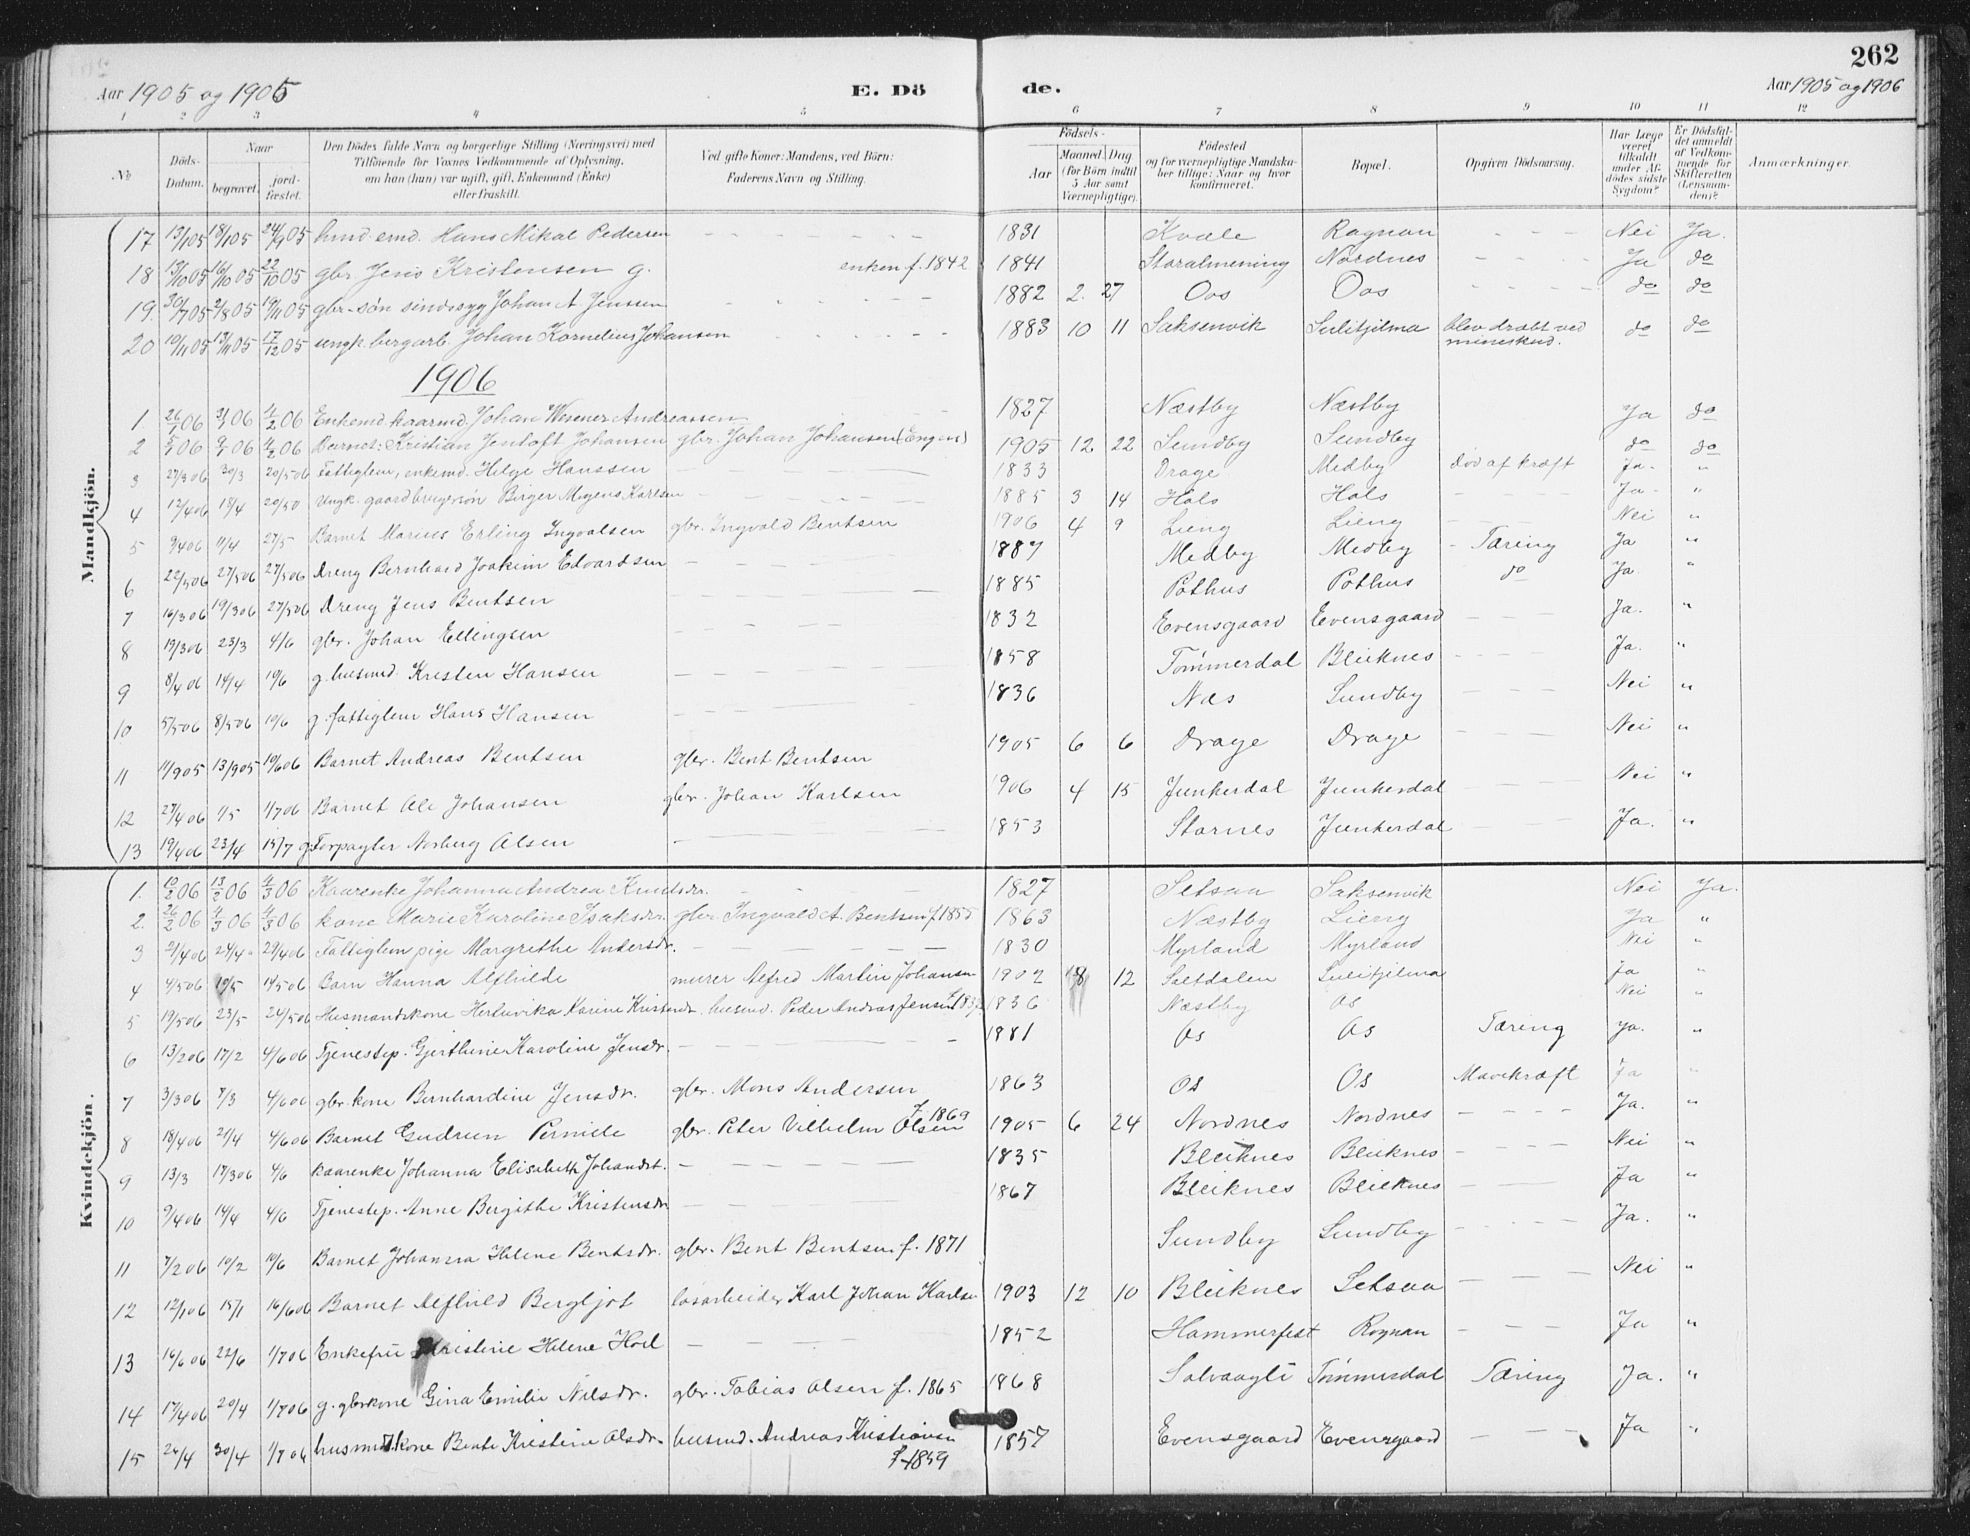 262
Aar 1905 og 1905 E. Dö de. Aar 1905 og 1906
1 2 3 4 5 6 7 8 9 10 11 12
No Döds-Datum. Naar begravet. jord-fæstet. Den Dödes fulde Navn og borgerlige Stilling (Næringsvei) med Tilföiende for Voxnes Vedkommende af Oplysning, om han (hun) var ugift, gift, Enkemand (Enke) eller fraskilt. Ved gifte Koner: Mandens, ved Börn: Faderens Navn og Stilling. Födsels- Aar Maaned. Dag (for Börn indtil 5 Aar samt Værnepligtige). Födested og for værnepligtige Mandskaber tillige: Naar og hvor konfirmeret. Bopæl. Opgiven Dödsaarsag. Har Læge været tilkaldt under Afdödes sidste Sygdom? Er Dödsfaldet anmeldt af Vedkommende for Skifteretten (Lensmanden)? Anmærkninger.
Mandkjön.
17 13/1 05 18/1 05 24/9 05 husmd. Hans Mikal Pedersen 1831 Kvæle Rognan Nei Ja.
18 13/10 05 16/10 05 22/10 05 gbr. Jens Kristensen g. enken f. 1842 1841 Storalmening Nordnes Ja do
19. 30/7 05 2/8 05 19/11 05 gbr-søn sindssyg Johan A. Jenssen 1882 2. 27 Oos Oos do do
20 10/11 05 13/11 05 17/12 05 ungk. bergarb. Johan Kornelius Johansen 1883 10 11 Saksenvik Sulitjelma blev dræbt ved mineskud. do do
1906
1 26/1 06 31/1 06 4/2 06 Enkemd. kaarmd. Johan Wesener Andreassen 1827 Næstby Næstby Ja do
2 5/1 06 9/1 06 4/2 06 Barnet: Kristian Jentoft Johansen gbr. Johan Johansen (Engen) 1905 12 22 Sundby Sundby do do
3 27/3 06 30/3 20/5 06 Fattiglem, enkemd. Helge Hanssen 1833 Drage Medby død af kræft Ja. "
4 12/4 06 18/4 20/5 0 Ungk. gaardbrugersøn Birger Mogens Karlsen 1885 3 14 Hals Hals Ja. "
5 9/4 06 11/4 27/5 Barnet Marius Erling Ingvalsen gbr. Ingvald Bentsen 1906 4 9 Lieng Lieng Nei "
6 22/5 06 27/5 06 27/5 06 Dreng Bernhard Joakim Edvardsen 1887 Medby Medby Tæring Ja "
7 16/3 06 19/3 06 27/5 06 Dreng Jens Bentsen 1885 Pothus Pothus do Ja. "
8 19/3 06 23/3 4/6 gbr. Johan Ellingsen 1832 Evensgaard Evensgaard Ja. "
9 8/4 06 14/4 10/6 g. husmd. Kristen Hansen 1858 Tømmerdal Bleiknes Ja. "
10 5/5 06 8/5 06 10/6 g. fattiglem Hans Hansen 1836 Næs Sundby Nei "
11 11/9 05 13/9 05 10/6 06 Barnet Andreas Bentsen gbr. Bent Bentsen 1905 6 6 Drage Drage Nei "
12 27/4 06 1/5 1/7 06 Barnet Ole Johansen gbr. Johan Karlsen 1906 4 15 Junkerdal Junkerdal Nei "
13 19/4 06 23/4 15/7 g. Forpagter Norberg Olsen 1853 Stornes Junkerdal Ja. "
Kvindekjön.
1. 10/2 06 13/2 06 4/3 06 Kaarenke Johanna Andrea Knudsdr. 1827 Setsaa Saksenvik Nei Ja.
2. 26/2 06 4/3 06 4/3 06 kone Marie Karoline Isaksdr. gbr. Ingvald A. Bentsen f 1855 1863 Næstby Lieng Ja "
3 21/4 06 24/4 29/4 06 Fattiglem pige Margrethe Andersdr. 1830 Myrland Myrland Nei "
4 4/5 06 10/5 14/5 06 Barn Hanna Alfhilde murer Alfred Martin Johansen 1902 8 12 Saltdalen Sulitjelma Ja "
5 19/5 06 23/5 24/5 06 Husmandskone Herluvika Karine Kristensdr. husmd. Peder Andreas Jensen f 1837 1836 Næstby Os Nei "
6 13/2 06 17/2 4/6 06 Tjenestep. Gjerthine Karoline Jensdr. 1881 Os Os Tæring Ja. "
7 3/3 06 7/3 4/6 06 gbr. kone Bernhardine Jensdr. gbr. Mons Andersen 1863 Os Os Mavekræft Ja "
8 18/4 06 21/4 4/6 06 Barnet Gudrun Pernile gbr. Peter Vilhelm Olsen f. 1869 1905 6 24 Nordnes Nordnes Ja. "
9 13/3 17/3 06 4/6 kaarenke Johanna Elisabeth Johandt. 1835 Bleiknes Bleiknes Nei "
10 9/4 06 14/4 4/6 Tjenestep. Anne Bergithe Kristensdr. 1867 Bleiknes Bleiknes Ja "
11 7/2 06 10/2 10/6 Barnet Johanna Helene Bentsdr. gbr. Bent Bentsen f. 1871 Sundby Sundby Ja. "
12 12/1 06 15/1 16/6 06 Barnet Alfhild Bergljot løsarbeider Karl Johan Karlsen 1903 12 10 Bleiknes Setsaa Nei "
13 16/6 06 22/6 1/7 06 Enkefru Kristine Helene Hoel 1852 Hammerfest Rognan Ja "
14 17/4 06 20/4 1/7 06 g. gbrkone Gina Emilie Nilsdr. gbr. Tobias Olsen f. 1865 1868 Solvaagli Tømmerdal Tæring Ja. "
15 26/4 30/4 1/7 06 husmdkone Beate Kristine Olsdr. husmd. Andreas Kristiansen f. 1859 1857 Evensgaard Evensgaard Ja "